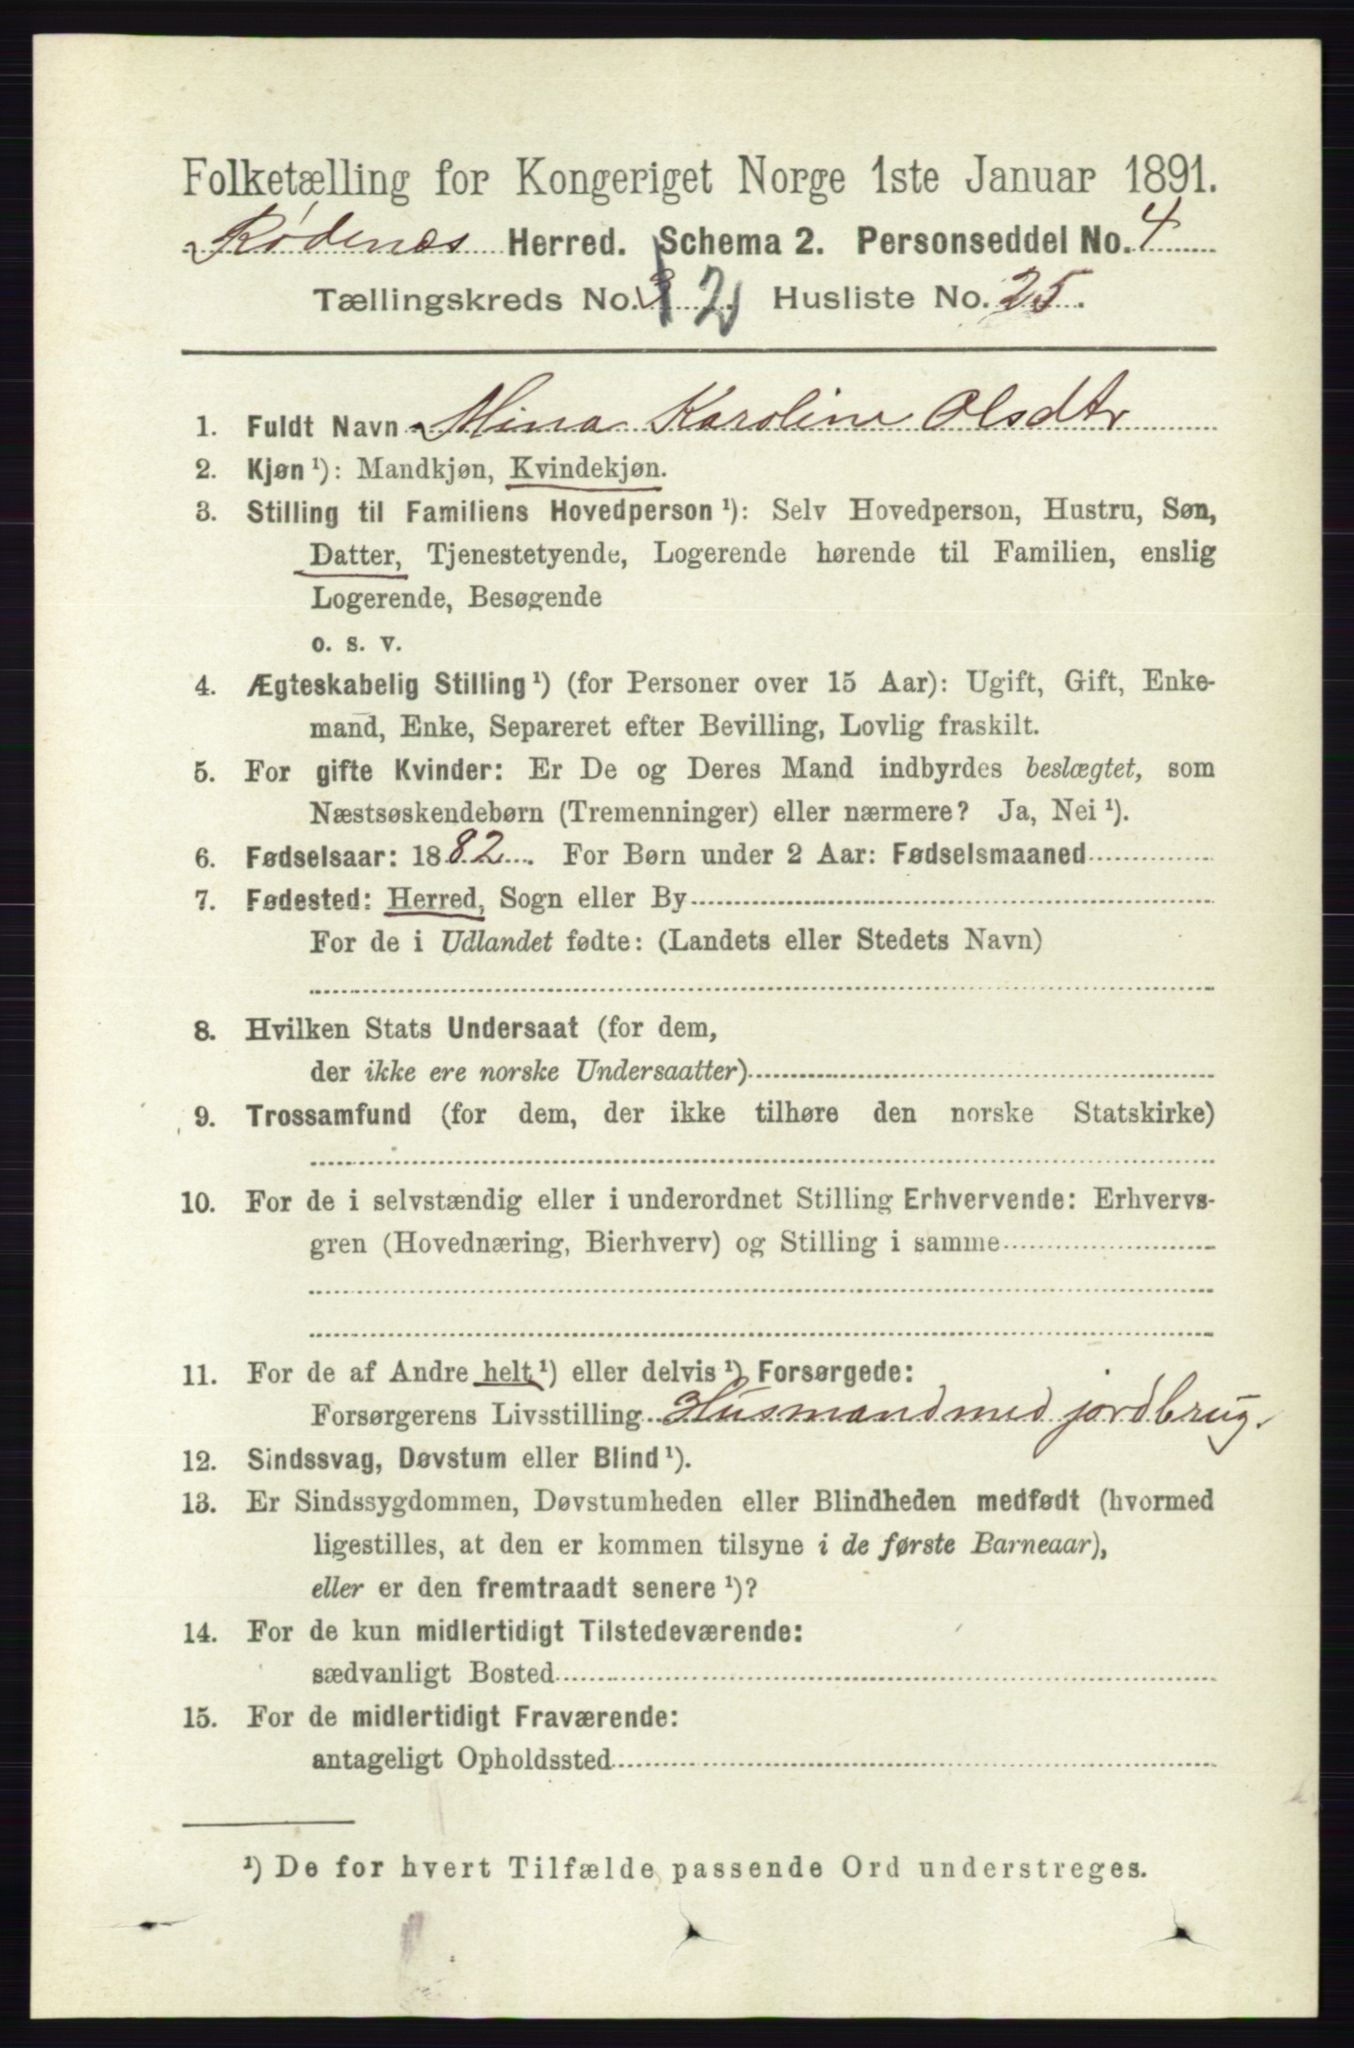 Folketælling for Kongeriget Norge 1ste Januar 1891.
Rødenes Herred. Schema 2. Personseddel No. 4
Tællingskreds No. 3 2 Husliste No. 25.
1. Fuldt Navn Mina Karoline Olsdtr
2. Kjøn ¹): Mandkjøn, Kvindekjøn.
3. Stilling til Familiens Hovedperson ¹): Selv Hovedperson, Hustru, Søn,
Datter, Tjenestetyende, Logerende hørende til Familien, enslig
Logerende, Besøgende
o. s. v.
4. Ægteskabelig Stilling ¹) (for Personer over 15 Aar): Ugift, Gift, Enke-
mand, Enke, Separeret efter Bevilling, Lovlig fraskilt.
5. For gifte Kvinder: Er De og Deres Mand indbyrdes beslægtet, som
Næstsøskendebørn (Tremenninger) eller nærmere? Ja, Nei ¹).
6. Fødselsaar: 1882. For Børn under 2 Aar: Fødselsmaaned
7. Fødested: Herred, Sogn eller By
For de i Udlandet fødte: (Landets eller Stedets Navn)
8. Hvilken Stats Undersaat (for dem,
der ikke ere norske Undersaatter)
9. Trossamfund (for dem, der ikke tilhøre den norske Statskirke)
10. For de i selvstændig eller i underordnet Stilling Erhvervende: Erhvervs-
gren (Hovednæring, Bierhverv) og Stilling i samme
11. For de af Andre helt ¹) eller delvis ¹) Forsørgede:
Forsørgerens Livsstilling Husmand med jordbrug.
12. Sindssvag, Døvstum eller Blind ¹).
13. Er Sindssygdommen, Døvstumheden eller Blindheden medfødt (hvormed
ligestilles, at den er kommen tilsyne i de første Barneaar),
eller er den fremtraadt senere ¹)?
14. For de kun midlertidigt Tilstedeværende:
sædvanligt Bosted
15. For de midlertidigt Fraværende:
antageligt Opholdssted
¹) De for hvert Tilfælde passende Ord understreges.